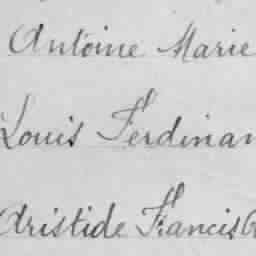 Antoine Marie
Louis Ferdinan
Aristide Francis